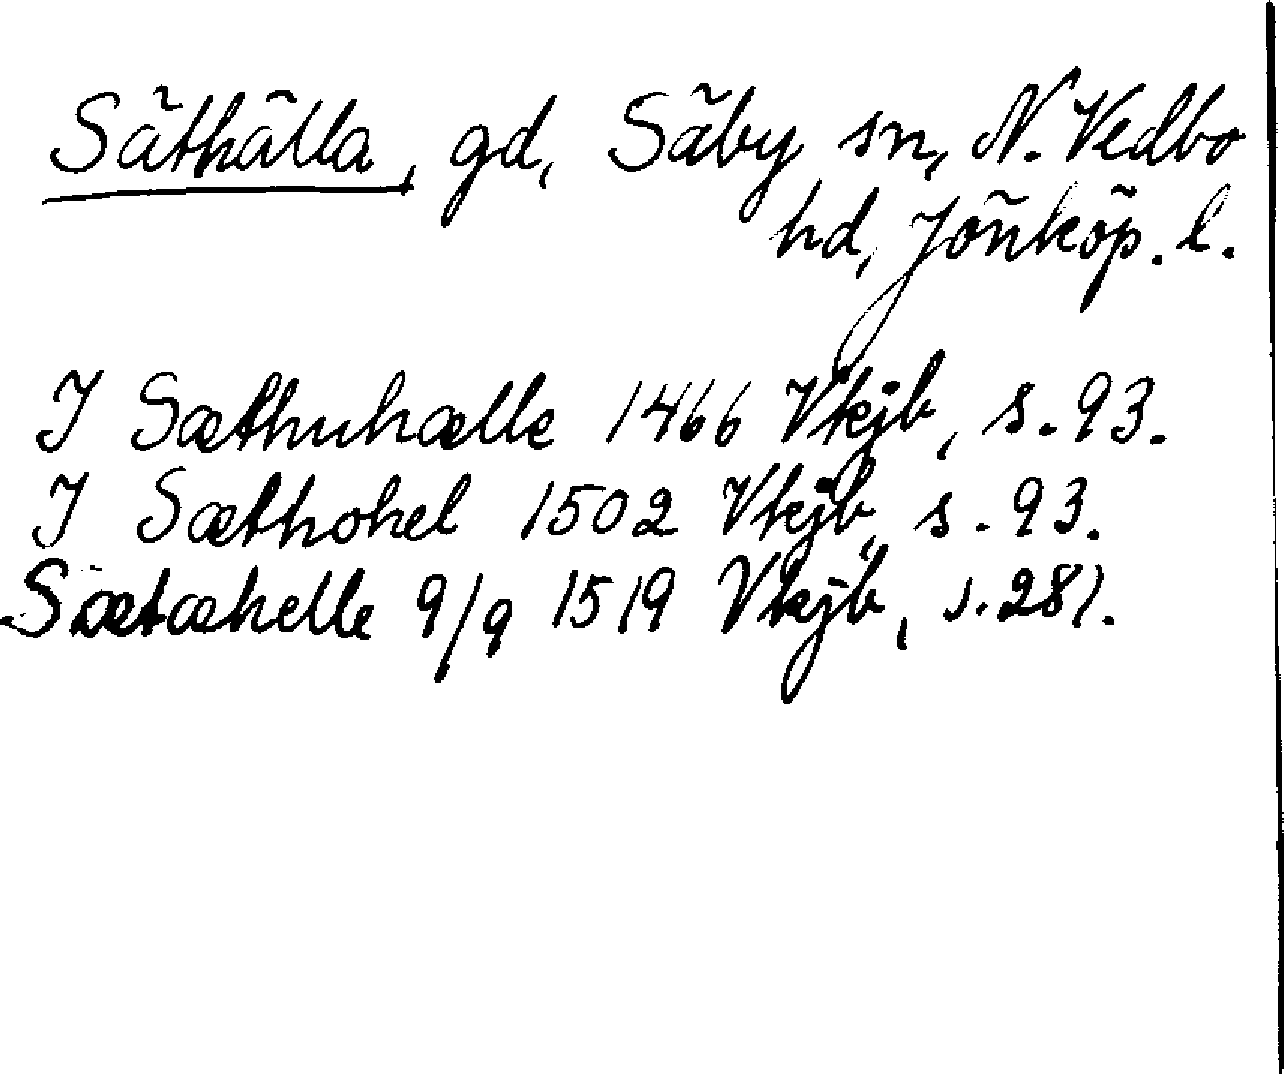 Säthälla, gd, Säby sn, N. Vedbo
hd, Jönköp. l.
I Sæthuhælle 1466 Vtkjb, s. 93.
I Sæthohel 1502 Vtkjb, s. 93.
Sætæhelle 9/9 1519 Vtkjb, s. 281.